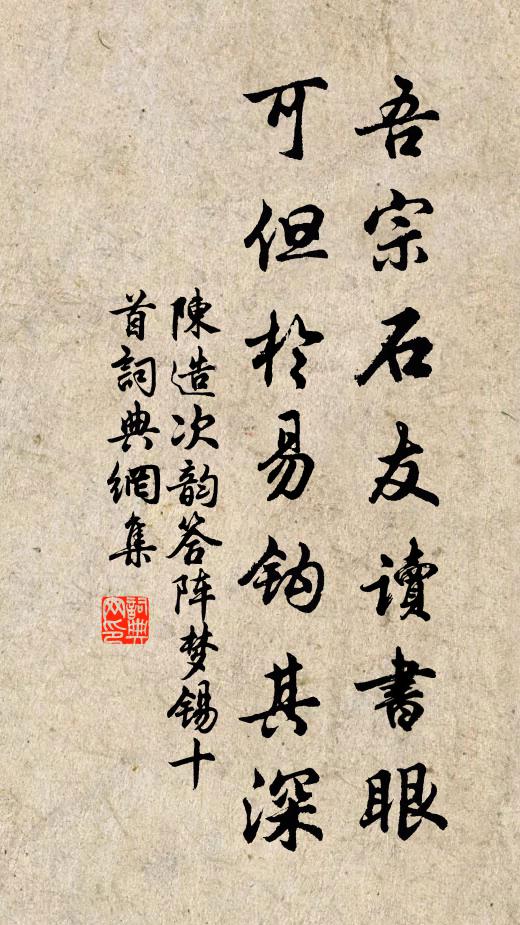 吾宗石友读書眼
可但於易鈎其深
陳造次韵答阵梦锡十
首詞典網集
詞典
网印